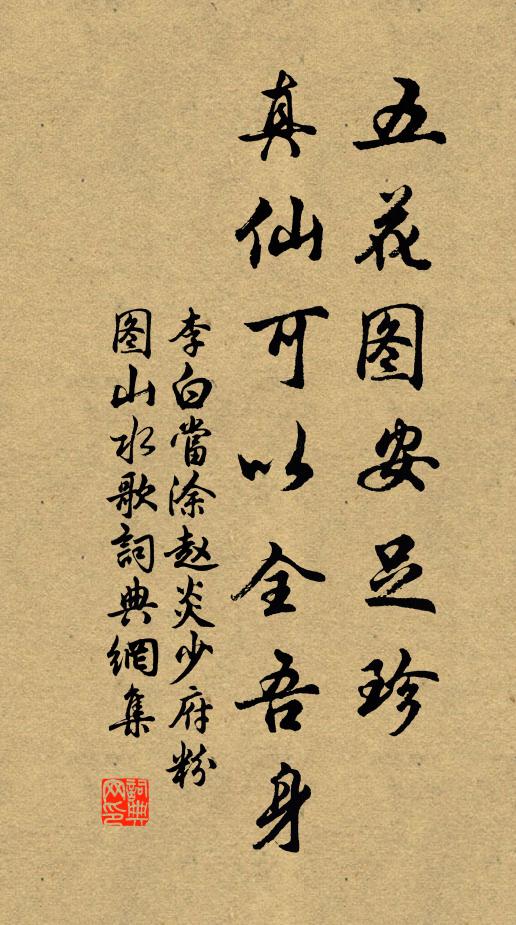 五花图安足珍
真仙可以全吾身
李白當涂赵炎少府粉
图山水歌詞典網集
詞典
网印